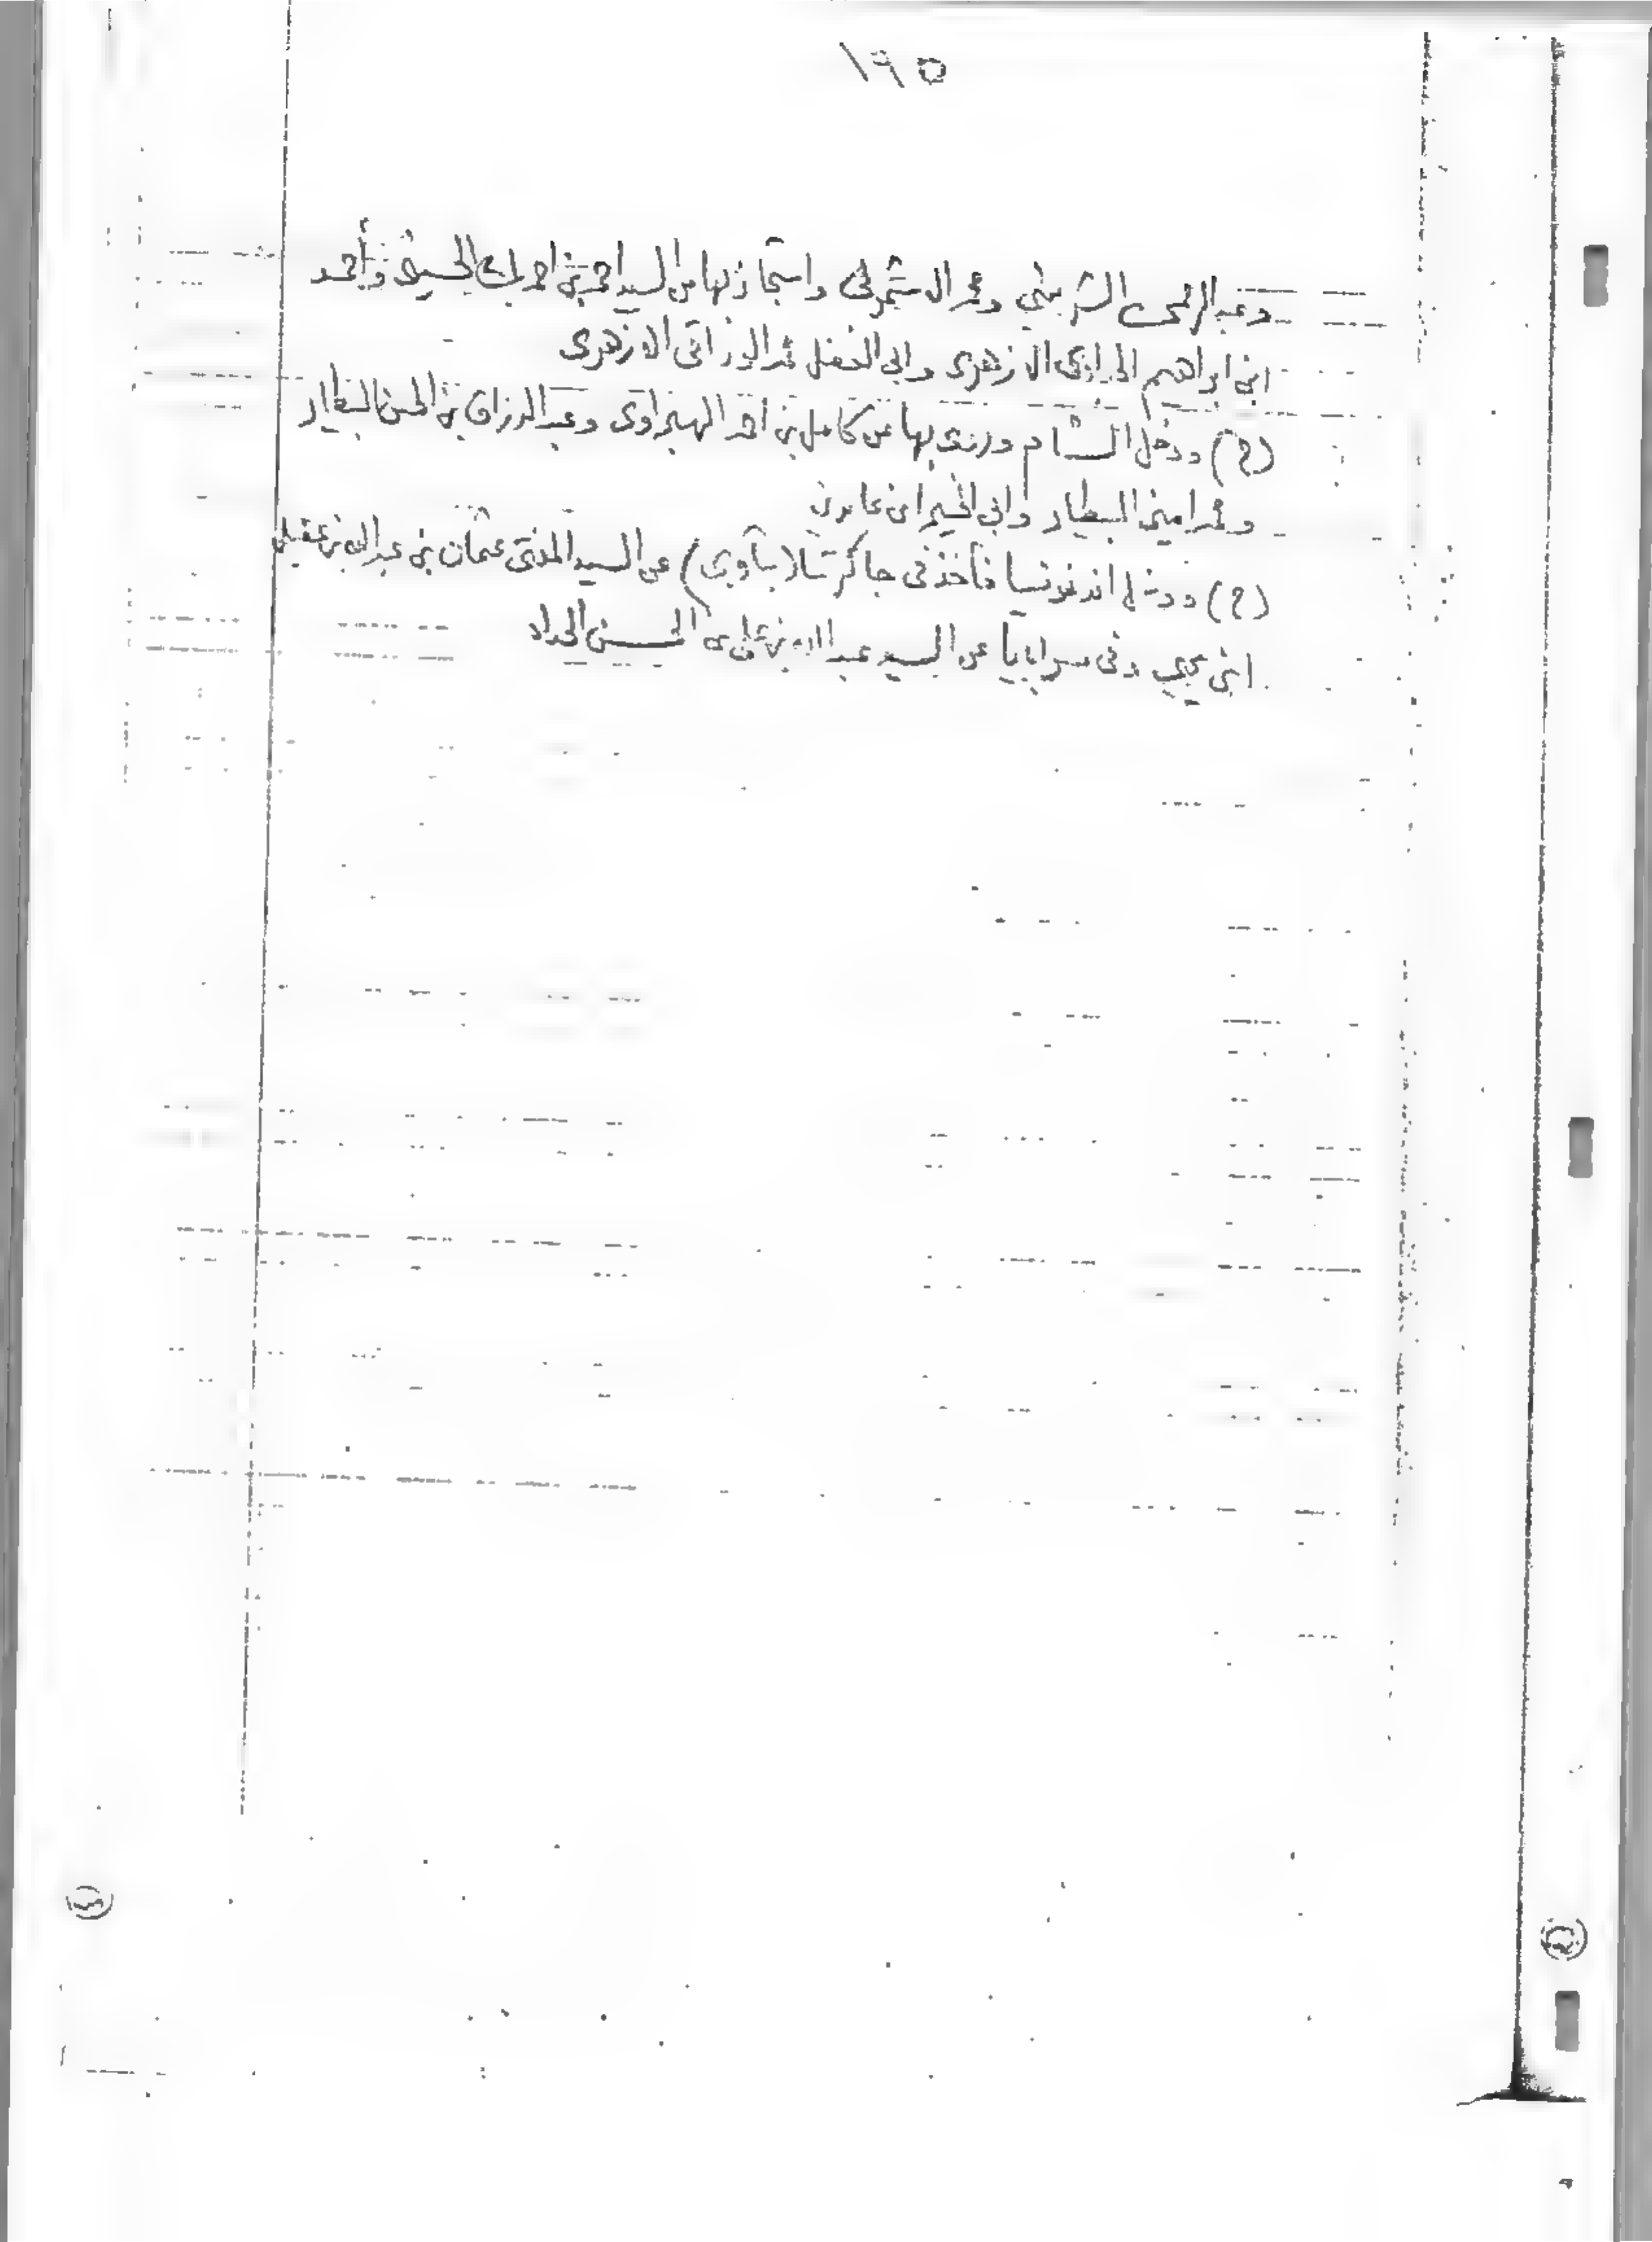 ١٩٥
وعبد الرحمن الشربيني ومحمد الاشموني واستجاز بها من السيد احمد بن احمد بك الحسيني وأحمد
ابن ابراهيم الازهري وابي الفضل محمد الوراقى الازهرى
(ح) ودخل الشام وروى بها عن كامل بن احمد الهبراوى وعبد الرزاق بن الحسن البيطار
ومحمد امين البيطار وابي الخير ابن عابدين
(ح) ودخل اندونسيا فأخذ في جاكرتا (بتاوى) عن السيد المفتى عثمان بن عبد الله بن عقيل
ابن يحيى وفى سرابايا عن السيد عبد الله بن على بن الحسن الحداد